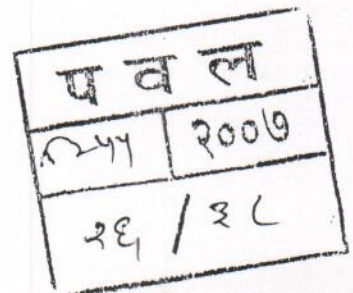 पवल
२००७
२६ / ३८